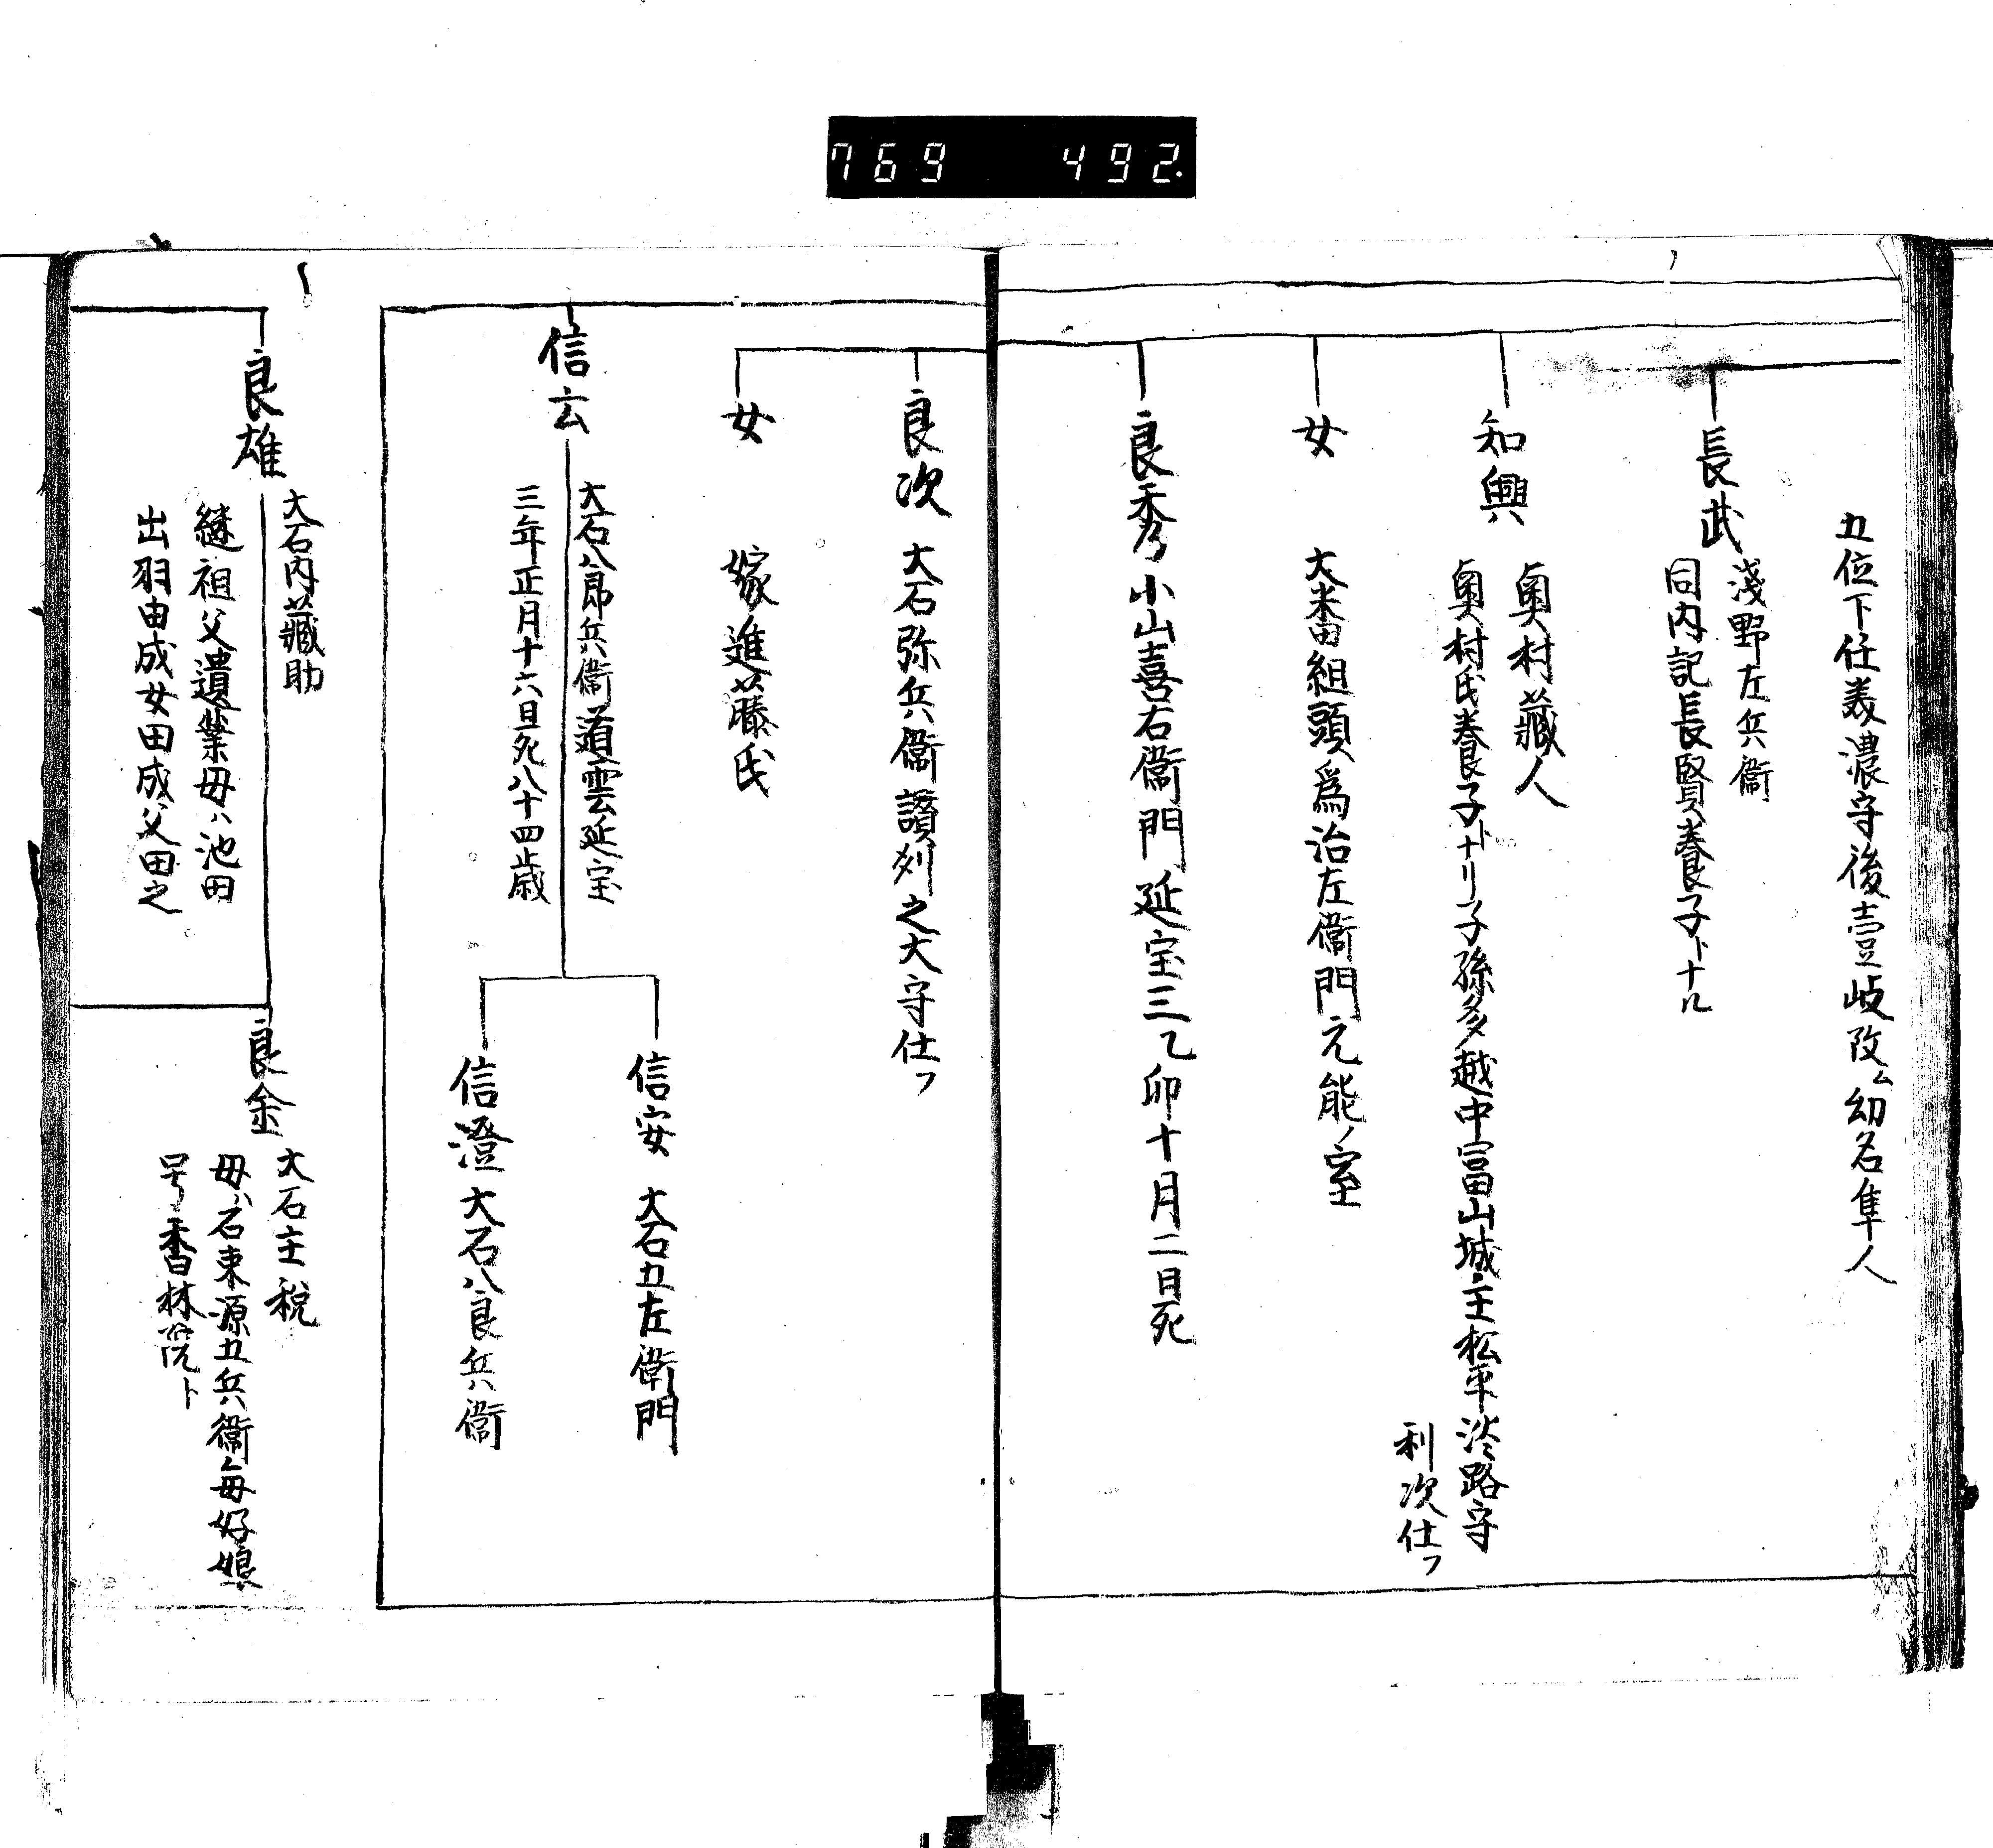 769 492.
五位下任美濃守後壹岐改ム幼名隼人
長武
淺野左兵衞
同内記長賢養子トナル
知興
奥村藏人
奥村氏養子トナリ子孫多越中富山城主松平淡路守
利次仕フ
女
大番組頭爲治左衞門元能ノ室
良秀
小山喜右衞門延宝三乙卯十月二日死
良次
大石弥兵衞讃刕之大守仕フ
女
嫁進藤氏
信云
大石八郎兵衞道雲延宝
三年正月十六日死八十四歳
信安
大石五左衛門
信澄
大石八良兵衞
良雄
大石内藏助
継祖父遺業母ハ池田
出羽由成女由成父由之
良金
大石主税
母ハ石束源五兵衞毎好娘
号香林院ト